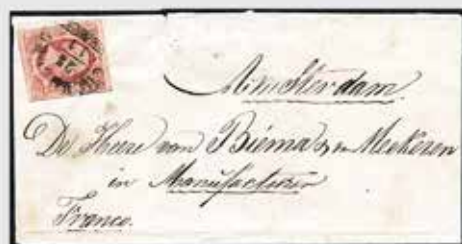 Amsterdam.
De Heere van Biema & van Meekeren
in Manufacturen
Franco.